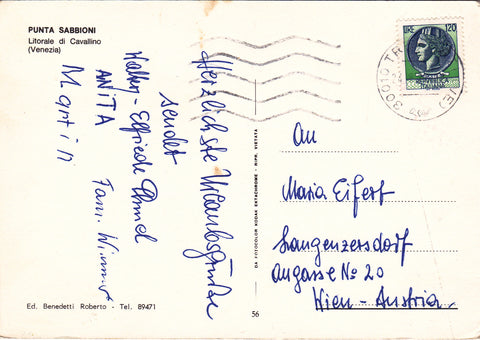 PUNTA SABBIONI
Litorale di Cavallino
(Venezia)
Herzlichste Urlaubsgrüße
sendet
Elfriede
ANITA Fam.
Martin
Ed. Benedetti Roberto - Tel. 89471
DA FOTOCOLOR KODAK EKTACHROME - RIPR. VIETATA
56
LIRE 120
30010
An
Maria Eifert
Langenzersdorf
Angasse No 20
Wien - Austria